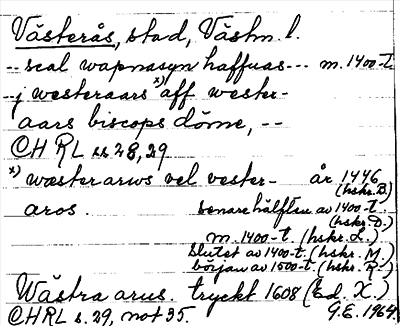 Västerås, stad, Västm. l.
-- scal wapnasyn haffuas --- m. 1400-t.
-- j westeraars x) aff wester-
aars biscops döme, --
CHRL ss 28, 29
x) wæster arws vel vester- år 1476
aros. (hskr. B.)
senare hälften av 1400-t.
(hskr. D.)
m. 1400-t. (hskr. L.)
slutet av 1400-t. (hskr. M.)
början av 1500-t. (hskr. R.)
Wästra arus. tryckt 1608 (Ed. X.)
CHRL s. 29, not 35. G.E. 1964